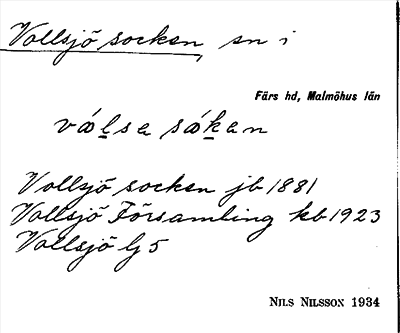 Vollsjö socken, sn i
Färs hd, Malmöhus län
vålsa såkan
Vollsjö socken jb 1881
Vollsjö Församling kb 1923
Vollsjö Lj 5
NILS NILSSON 1934